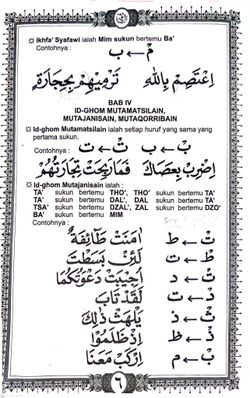 ¤ Ikhfa' Syafawi ialah Mim sukun bertemu Ba'
Contohnya :
مْ ← ب
اِعْتَصِمْ بِاللّٰهِ تَرْمِيْهِمْ بِحِجَارَةٍ
BAB IV
ID-GHOM MUTAMATSILAIN,
MUTAJANISAIN, MUTAQORRIBAIN
¤ Id-ghom Mutamatsilain ialah setiap huruf yang sama yang
pertama sukun.
Contohnya : بْ ← ب تْ ← ت
اِضْرِبْ بِعَصَاكَ فَمَا رَبِحَتْ تِجَارَتُهُمْ
¤ Id-ghom Mutajanisain ialah :
TA' sukun bertemu THO', THO' sukun bertemu TA'
TA' sukun bertemu DAL', DAL sukun bertemu TA'
TSA' sukun bertemu DZAL', ZAL sukun bertemu DZO'
BA' sukun bertemu MIM
Contohnya :
تْ ← ط اٰمَنَتْ طَائِفَةٌ
طْ ← ت لَئِنْ بَسَطْتَ
تْ ← د اُجِيْبَتْ دَعْوَتُكُمَا
دْ ← ت لَقَدْ تَابَ
ثْ ← ذ يَلْهَثْ ذٰلِكَ
ذْ ← ظ اِذْ ظَلَمُوْا
بْ ← م اِرْكَبْ مَعَنَا
٦